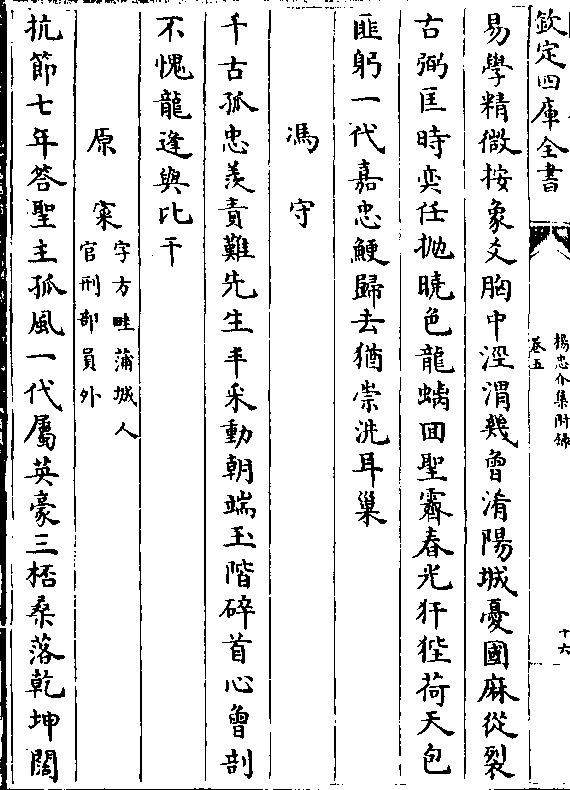 欽定四庫全書
楊忠介集附錄
卷五
十六
易學精微按象爻胸中涇渭幾曾淆陽城憂國麻從裂
古弼匡時奕任抛曉色龍螭回聖霽春光犴狴荷天包
匪躬一代嘉忠鯁歸去猶崇洗耳巢
馮守
千古孤忠羡責難先生丰采動朝端玉階碎首心曾剖
不愧龍逢與比干
原寀
字方畦蒲城人
官刑部員外
抗節七年答聖主孤風一代屬英豪三栝桑落乾坤闊